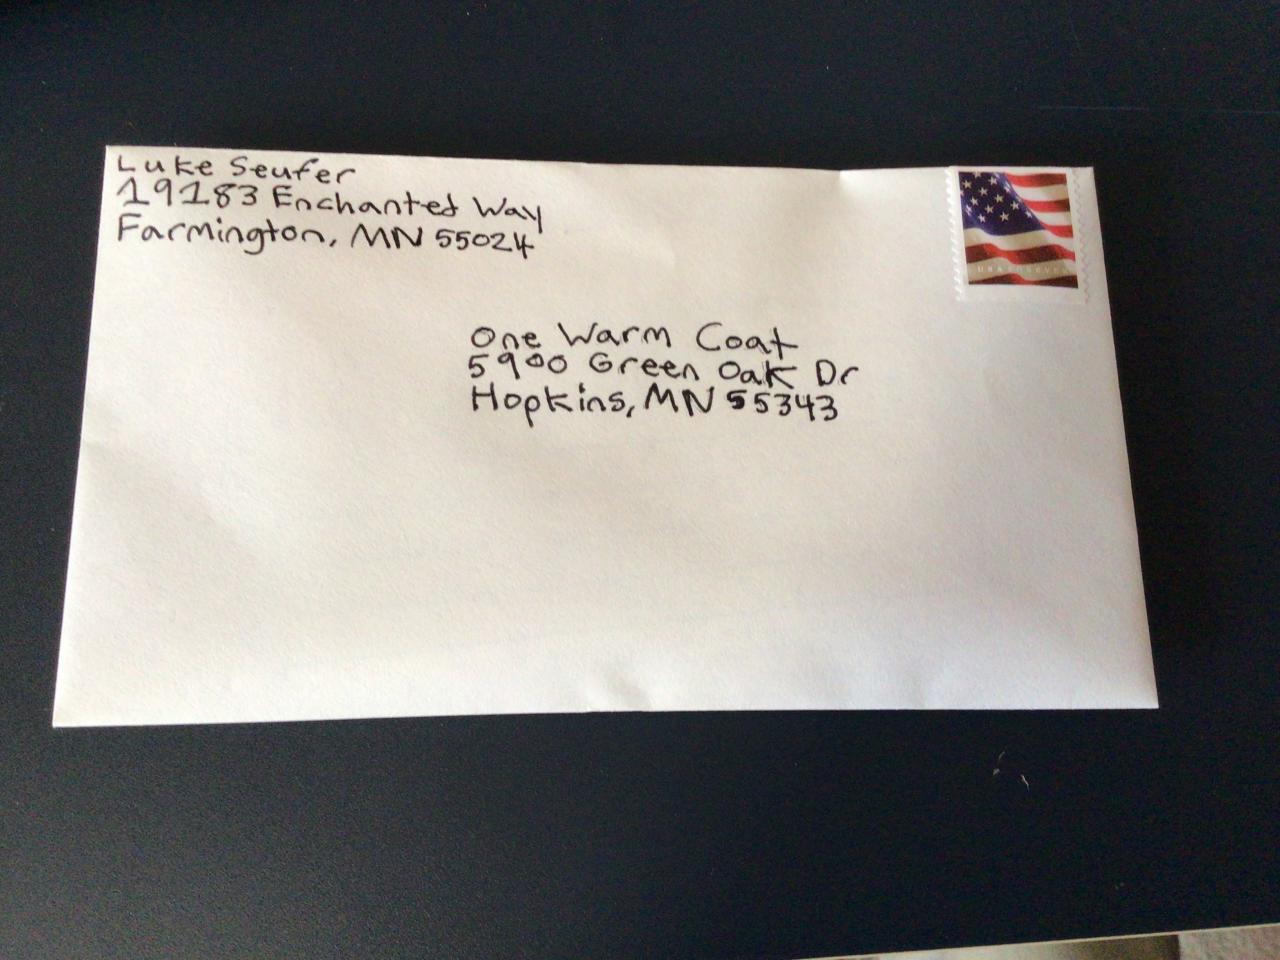 Luke Seufer
19183 Enchanted Way
Farmington, MN 55024
USA FOREVER
One Warm Coat
5900 Green Oak Dr
Hopkins, MN 55343